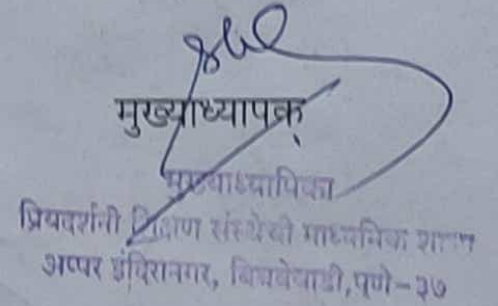 मुख्याध्यापक
मुख्याध्यापिका
प्रियदर्शनी शिक्षण संस्थेची माध्यमिक शाळा
अप्पर इंदिरानगर, बिबवेवाडी, पुणे-३७